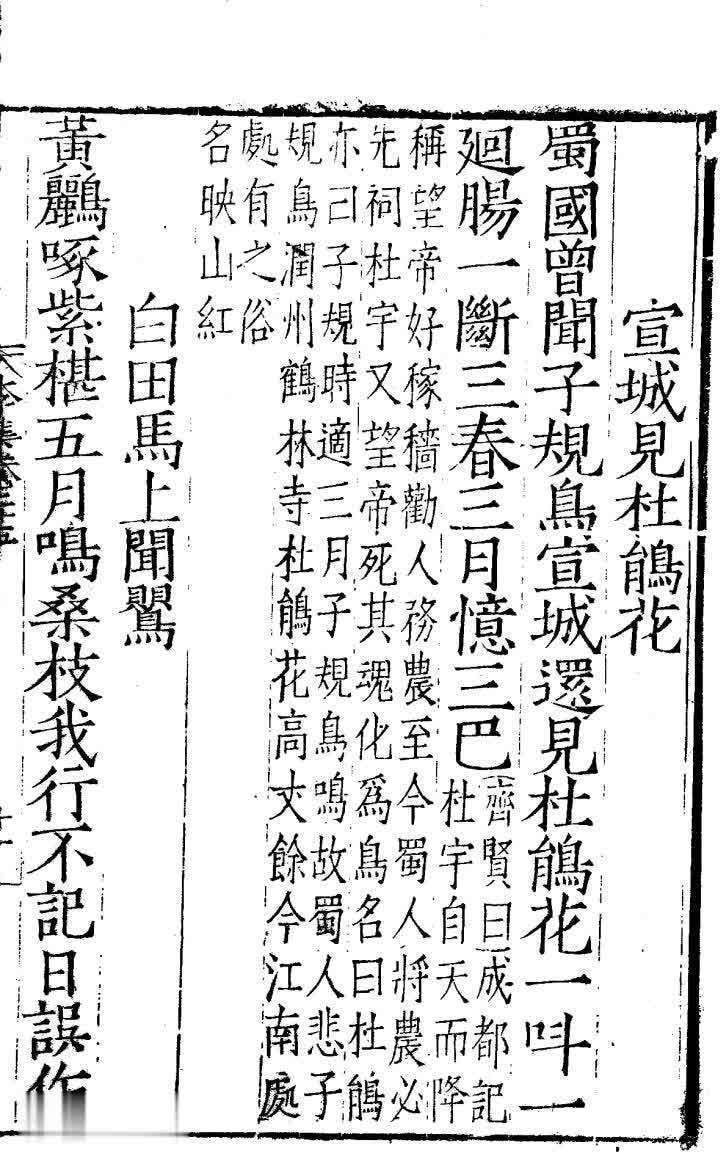 宣城見杜鵑花
蜀國曾聞子規鳥宣城還見杜鵑花一呌一
廻腸一斷三春三月憶三巴
齊賢曰成都記
杜宇自天而降
稱望帝好稼穡勸人務農至今蜀人將農必
先祠杜宇又望帝死其魂化爲鳥名曰杜鵑
亦曰子規時適三月子規鳥鳴故蜀人悲子
規鳥潤州鶴林寺杜鵑花高丈餘今江南處
處有之俗
名映山紅
白田馬上聞鸎
黃鸝啄紫椹五月鳴桑枝我行不記日誤作